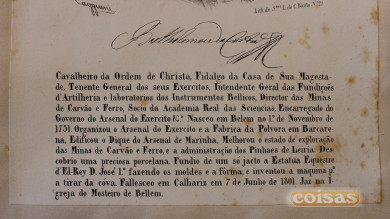 Lith. de Jme L. da Costa, N.º
Bartholomeu da Costa
Cavalheiro da Ordem de Christo, Fidalgo da Casa de Sua Magesta-
de, Tenente General dos seus Exercitos, Intendente Geral das Fundições
d'Artilheria e laboratorios dos Instrumentos Bellicos, Director das Minas
de Carvão e Ferro, Socio da Academia Real das Sciencias, Encarregado do
Governo do Arsenal do Exercito &ª Nasceo em Belem no 1º de Novembro de
1731. Organizou o Arsenal do Exercito e a Fabrica da Polvora em Barcare-
na, Edificou o Dique do Arsenal de Marinha, Melhorou o estado de exploração
das Minas de Carvão e Ferro, e a administração dos Pinhaes de Leiria. Des-
cobrio uma preciosa porcelana. Fundio de um só jacto a Estatua Equestre
d'El-Rey D. José 1º fazendo os moldes e a fórma, e inventou a maquina pª
a tirar da cóva. Fallesceo em Calhariz em 7 de Junho de 1801. Jaz na I-
greja do Mosteiro de Bellem.
coisas